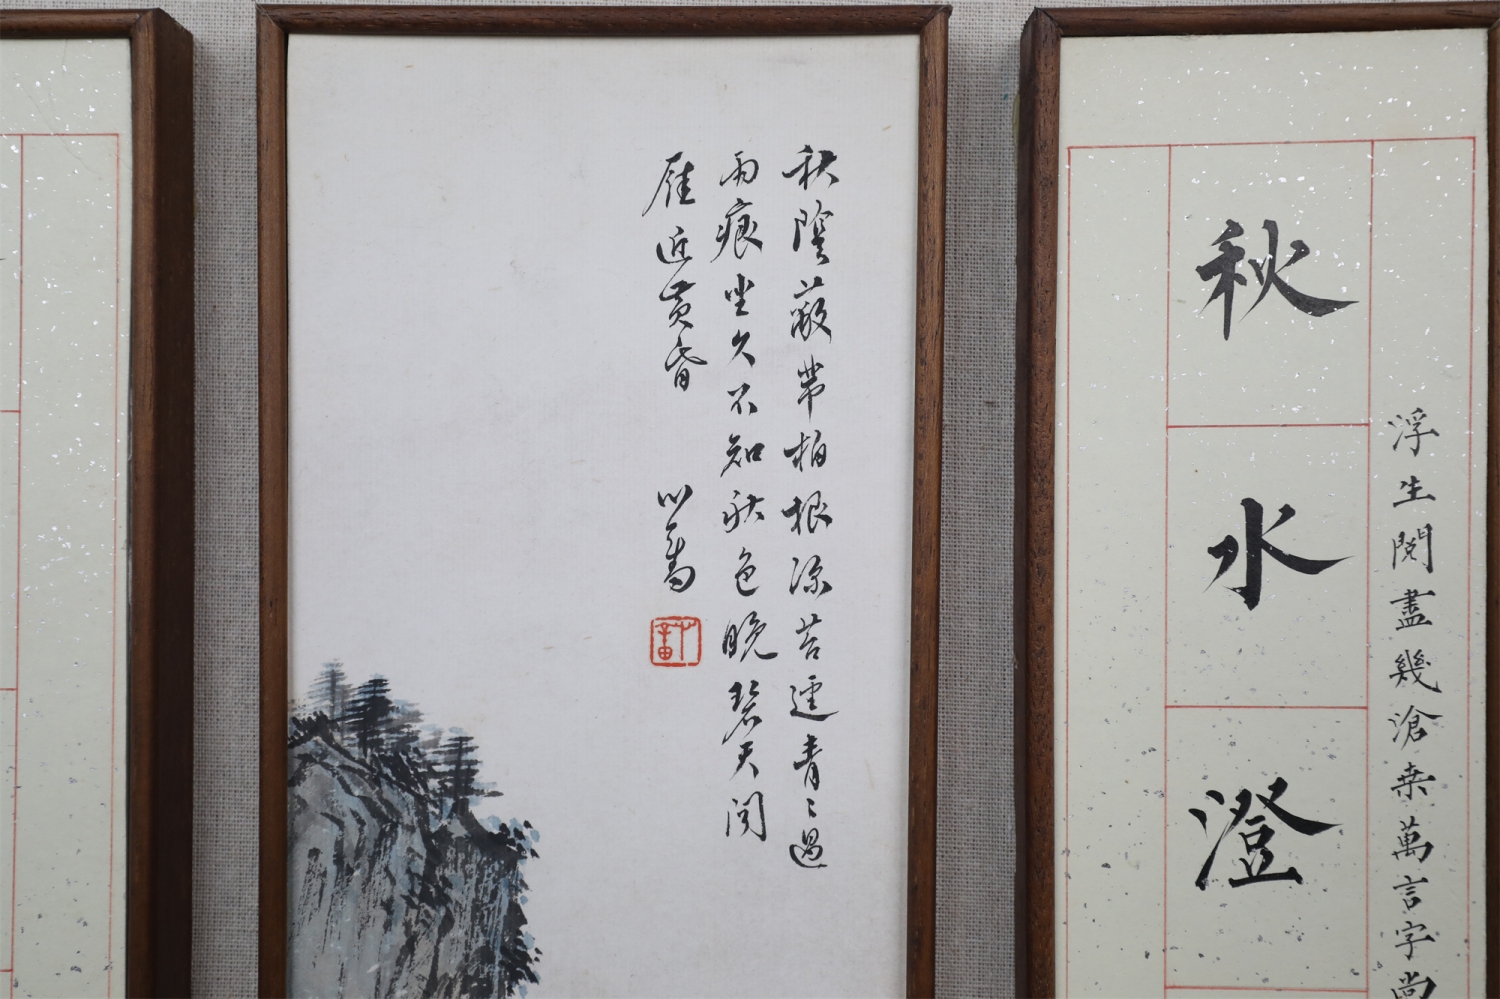 浮生閱盡幾滄桒萬言字尚
秋水澄
秋陰蔽芾柏根涼苔逕青〻過
雨痕坐久不知秋色晚碧天聞
雁近黃昏 心畬